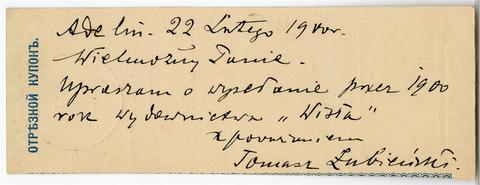 ОТРѢЗНОЙ КУПОНЪ.
Adelin. 22 Lutego 1900r.
Wielmożny Panie.
Upraszam o wysyłanie przez 1900
rok wydawnictwa „Wisła"
z poważaniem
Tomasz Łubieński.